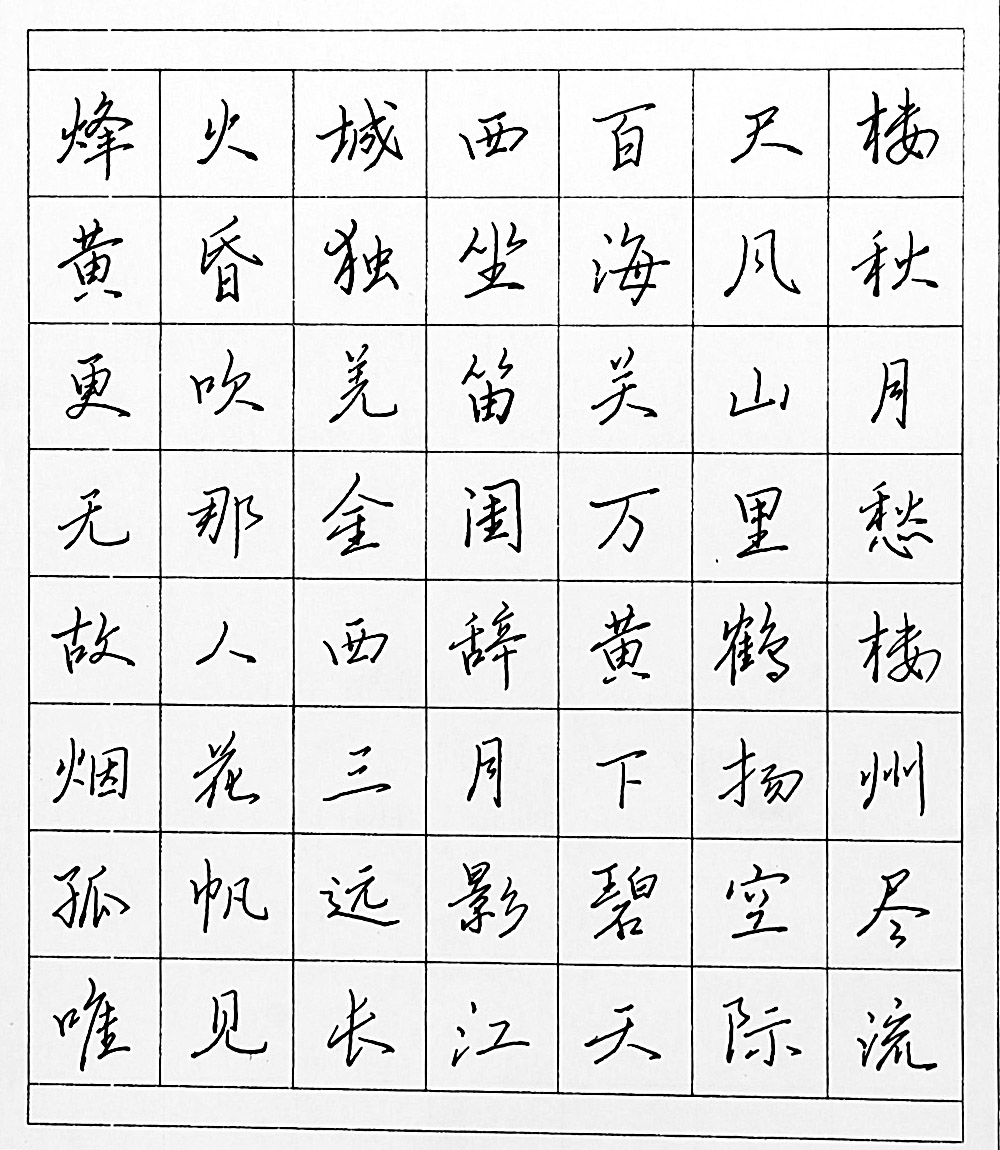 烽火城西百尺楼
黄昏独坐海风秋
更吹羌笛关山月
无那金闺万里愁
故人西辞黄鹤楼
烟花三月下扬州
孤帆远影碧空尽
唯见长江天际流